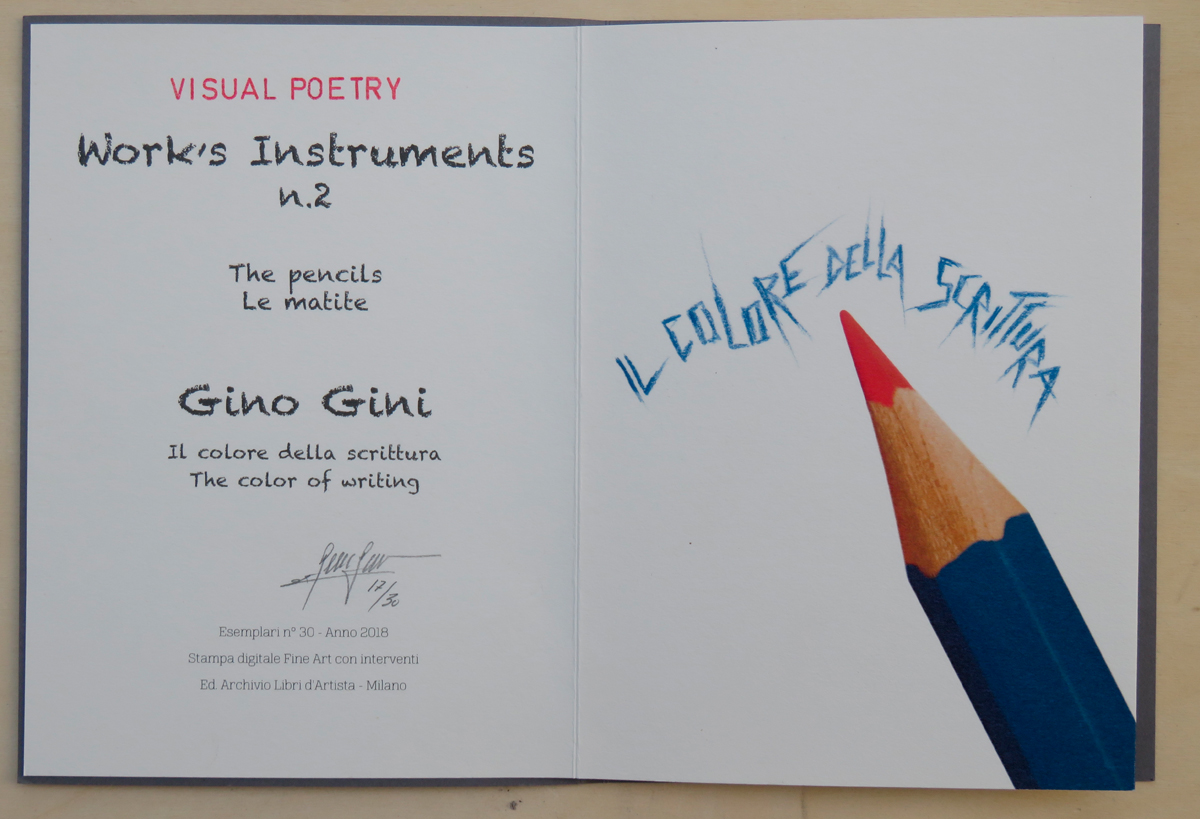 VISUAL POETRY
Work's Instruments
n.2
The pencils
Le matite
Gino Gini
Il colore della scrittura
The color of writing
Gino Gini
17/30
Esemplari n° 30 - Anno 2018
Stampa digitale Fine Art con interventi
Ed. Archivio Libri d'Artista - Milano
IL COLORE DELLA SCRITTURA